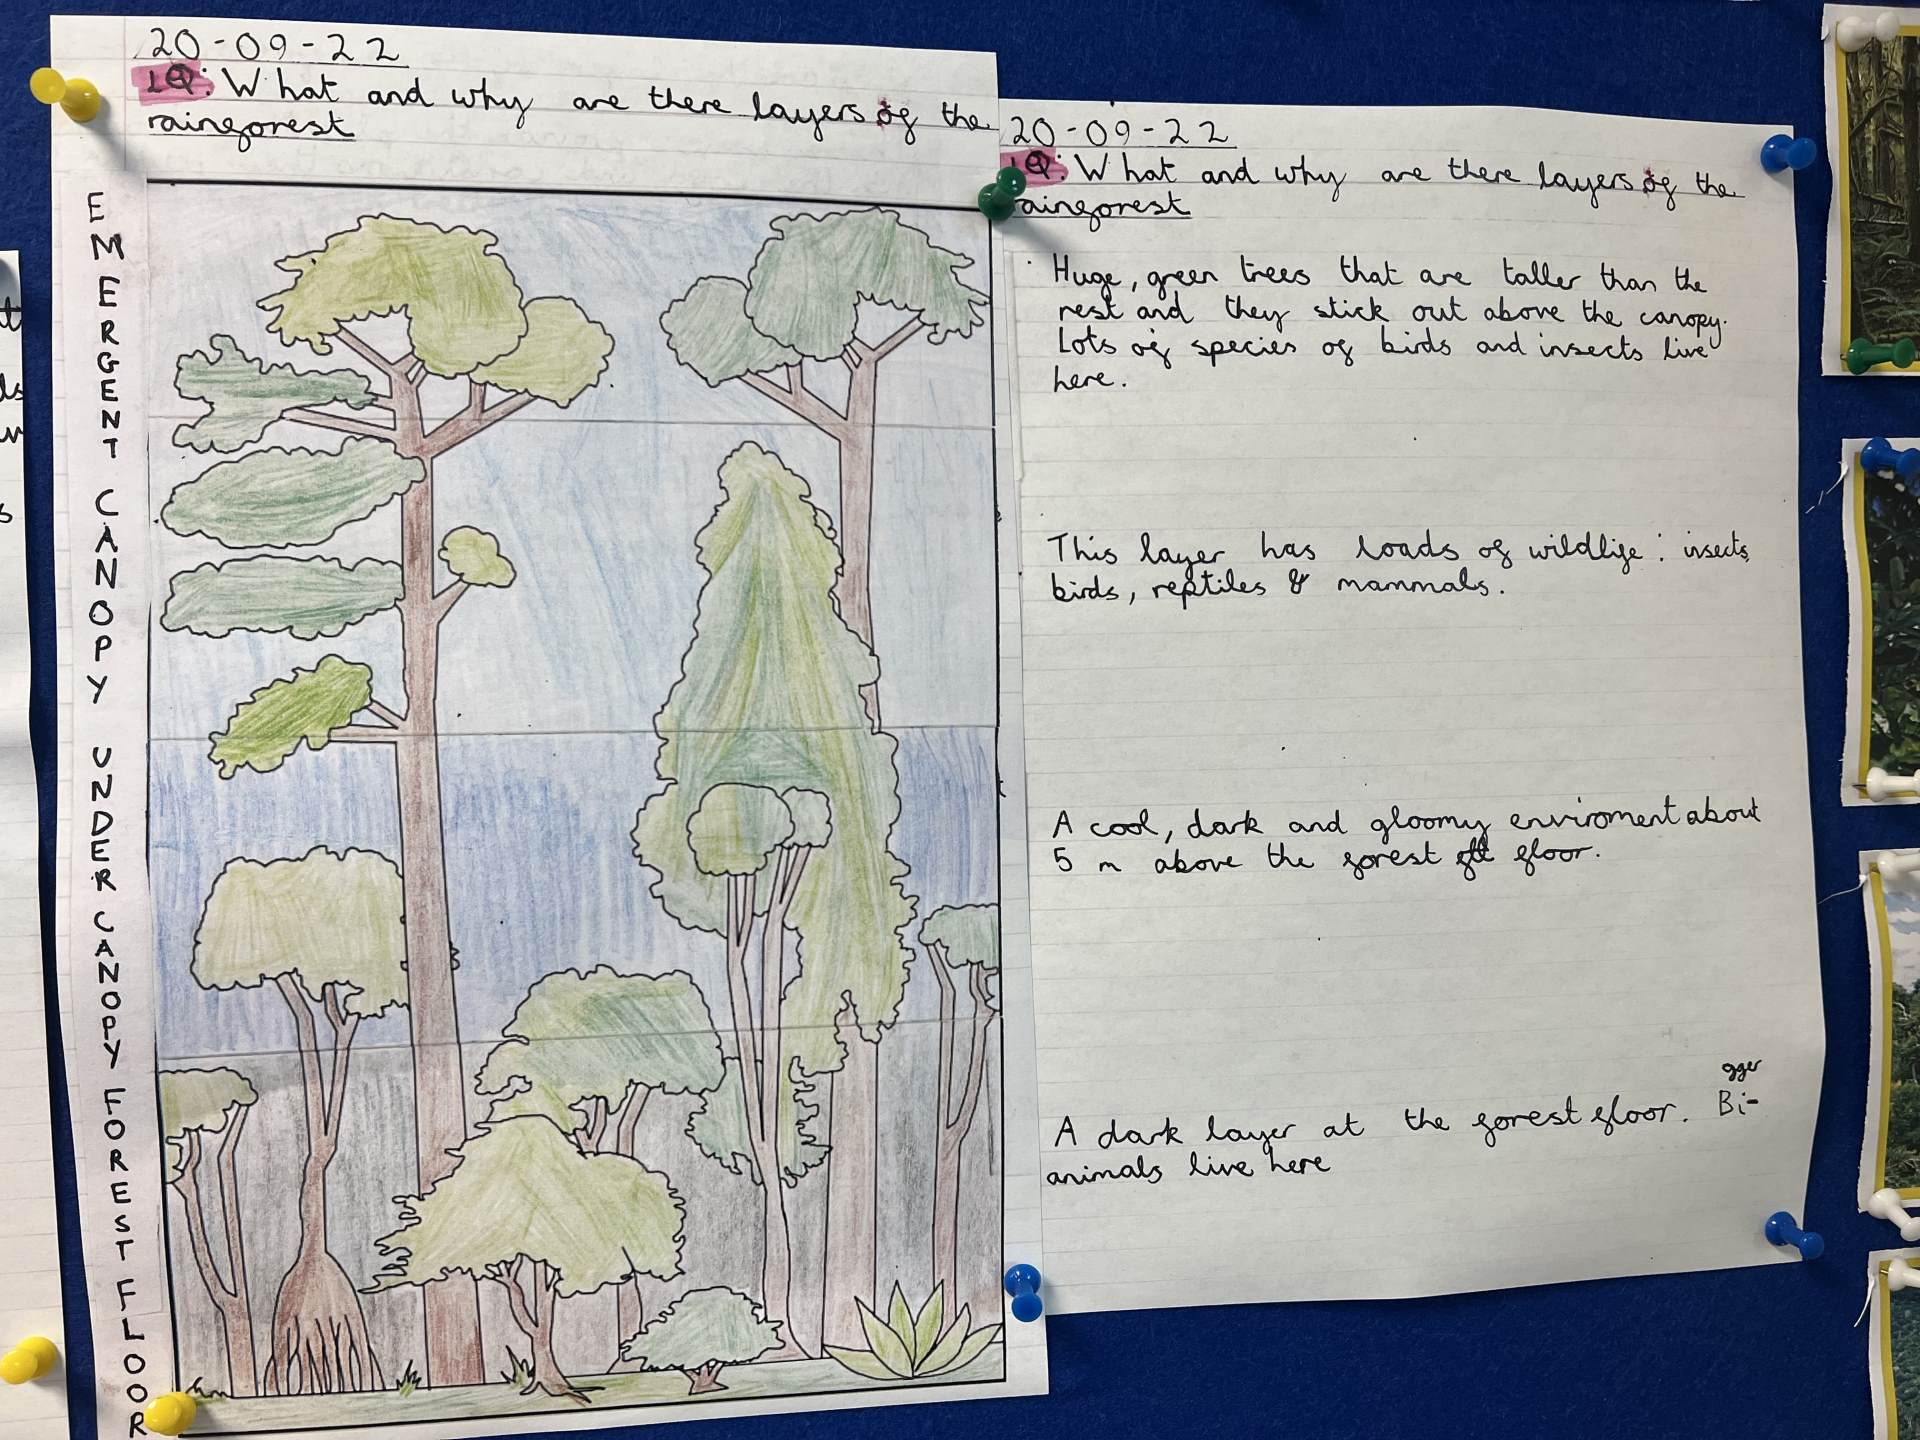 20-09-22
LQ: What and why are there layers of the
rainforest
EMERGENT CANOPY UNDER CANOPY FOREST FLOOR
20-09-22
LQ: What and why are there layers of the
rainforest
Huge, green trees that are taller than the
rest and they stick out above the canopy.
Lots of species of birds and insects live
here.
This layer has loads of wildlife: insects,
birds, reptiles & mammals.
A cool, dark and gloomy enviroment about
5 m above the forest floor.
gger
A dark layer at the forest floor. Bi-
animals live here